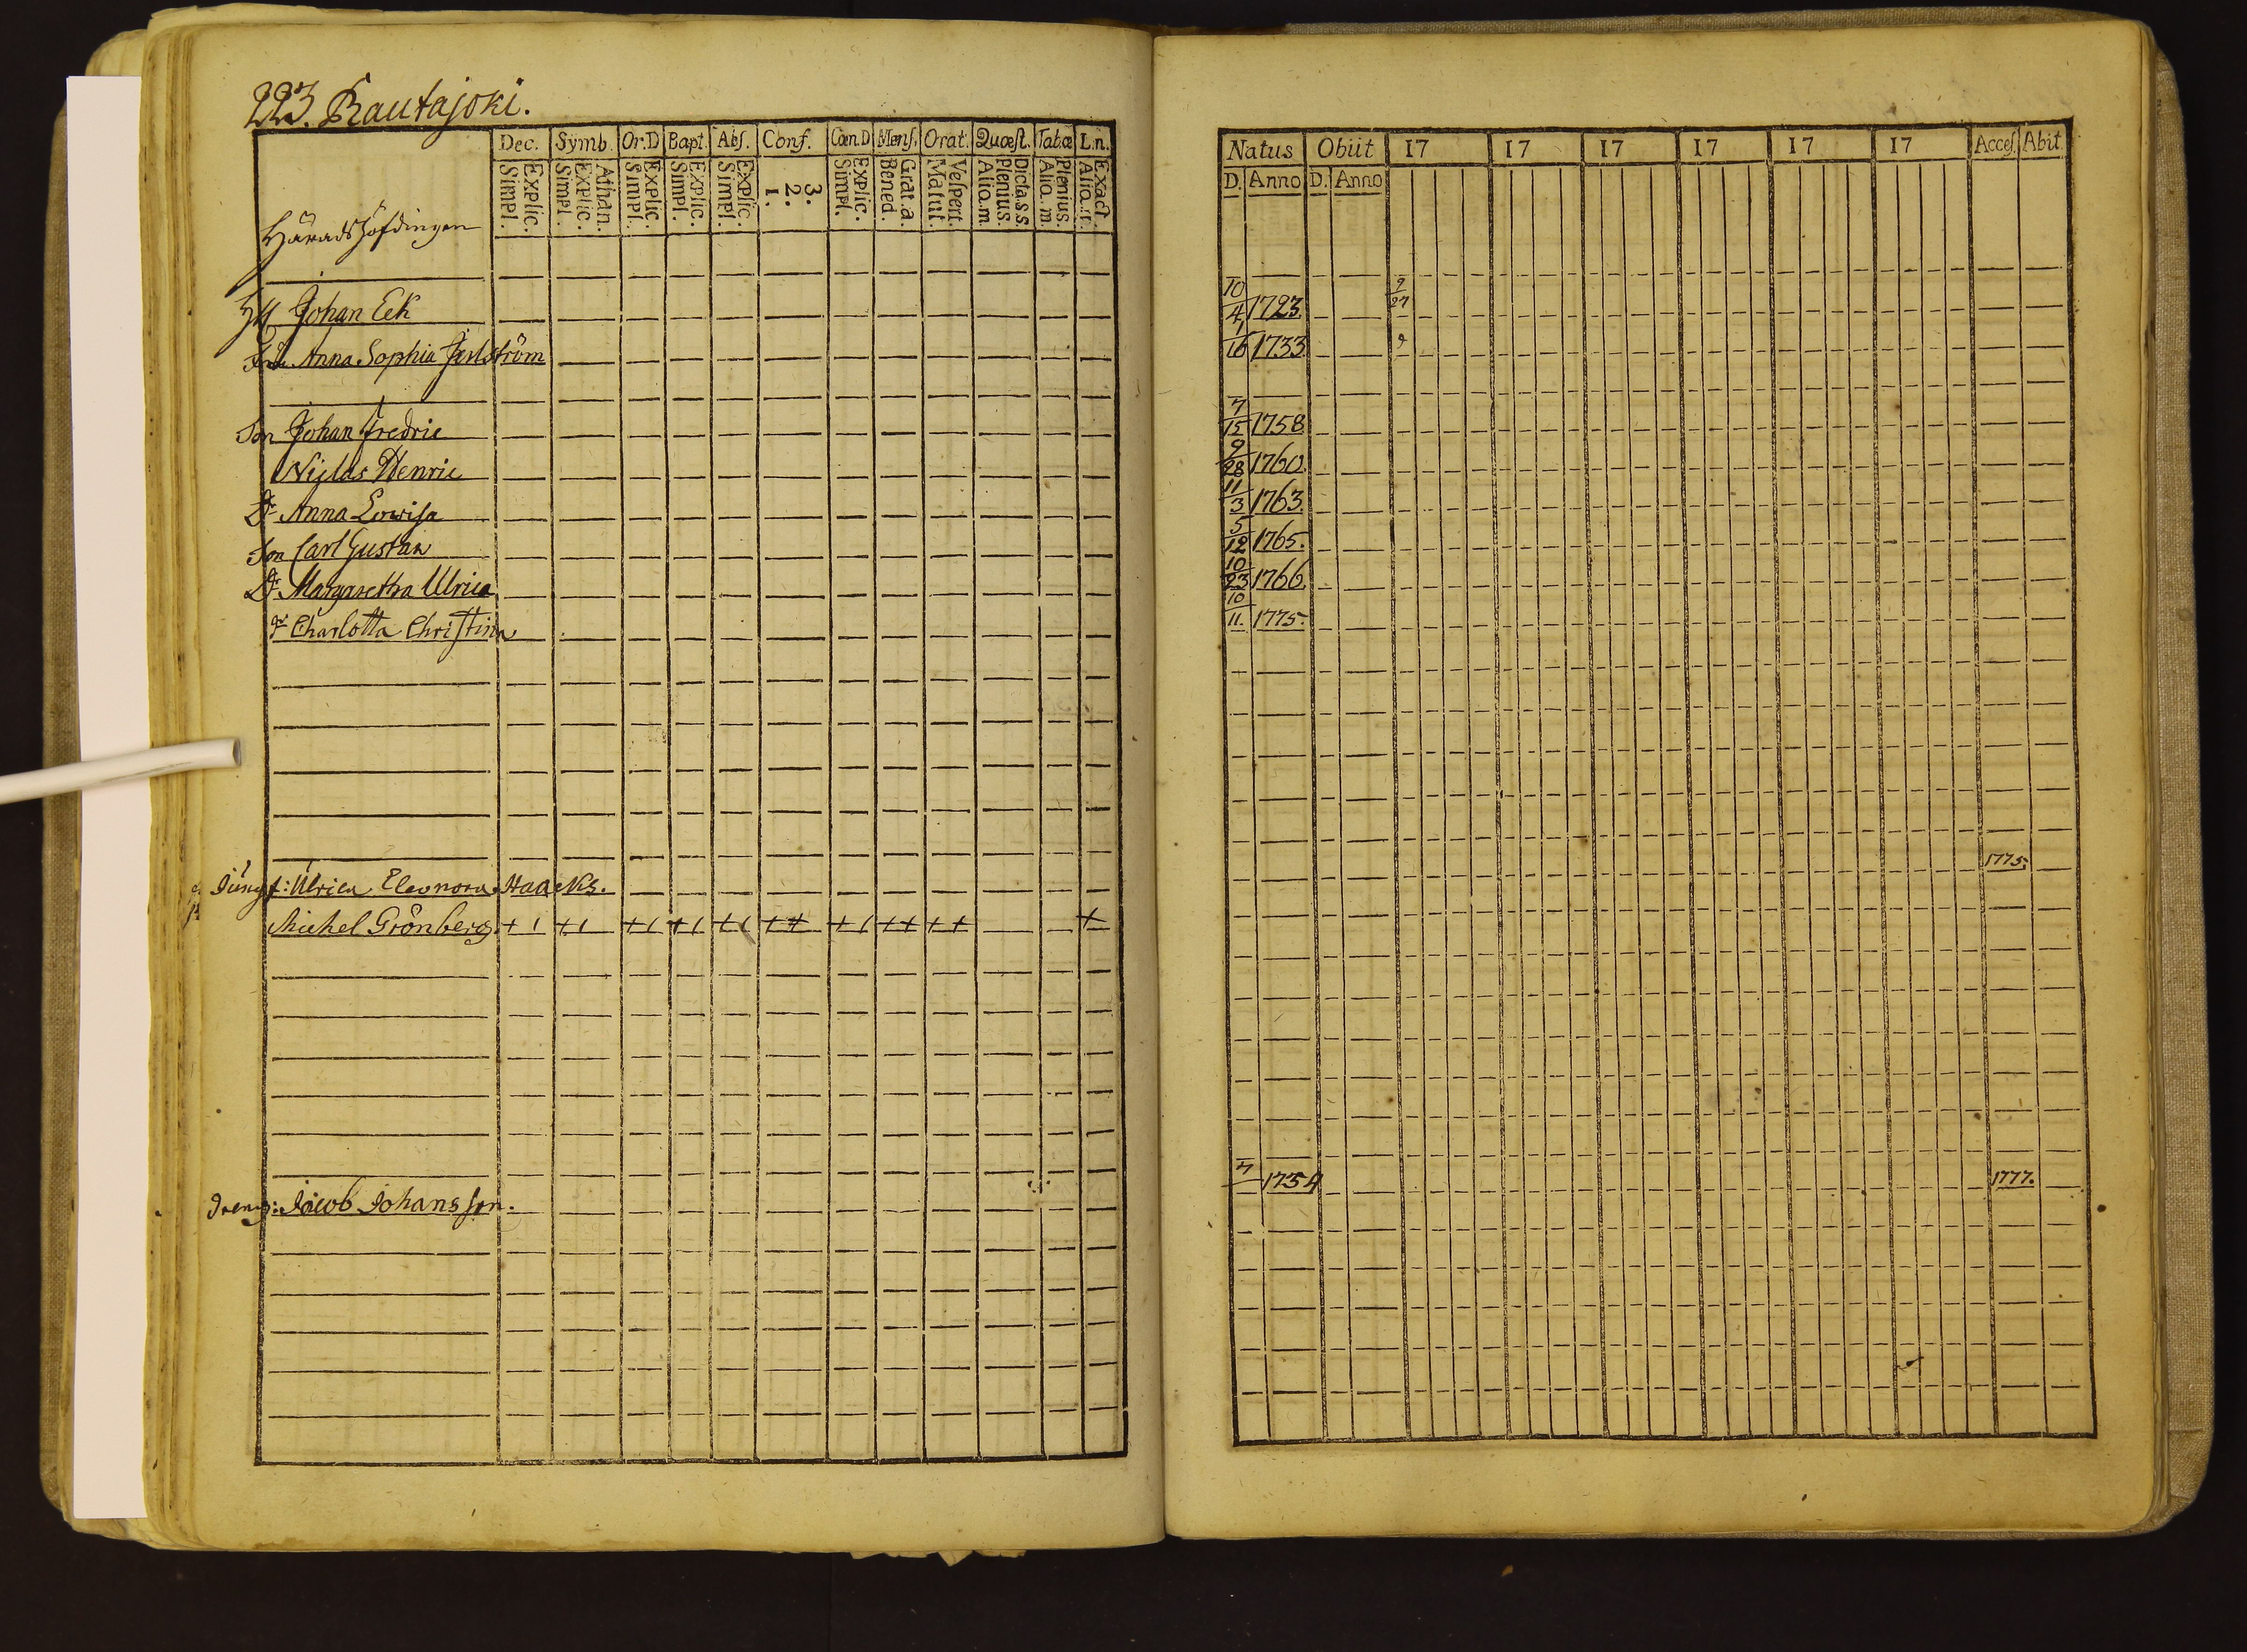 223. Rautajoki.
Dec. Symb. Or.D Bapt. Abs. Conf. Cœn.D Mens. Orat. Quæst. Tab.œ L.n.
Simpl. Explic. Simpl. Explic. Athan. Simpl. Explic. Simpl. Explic. Simpl. Explic. 1. 2. 3. Simpl. Explic. Bened. Grat.a. Matut. Vespert. Aliq.m. Plenius. Dicta.s.s. Aliq.m. Plenius. Exact.
Häradshöfdingen
Johan Eek
Anna Sophia
Son Johan Fredric
Niclas Henric
Dr Anna Lowisa
Son Carl Gustav
Dr Margaretha Ulrica
Dr Charlotta Christina
Jungf: Ulrica Eleonora Haacks.
Michel Grönberg. + 1 + 1 + 1 + 1 + 1 + + + 1 + + + + +
Dreng: Jacob Johansson.
Natus Obiit 17 17 17 17 17 17 Acces. Abit.
D. Anno D. Anno
10/4 1723. 9/27
1/16 1733. 9
7/15 1758
9/28 1760.
11/3 1763.
5/12 1765.
10/23 1766
10/11. 1775.
1775.
7 1754 1777.